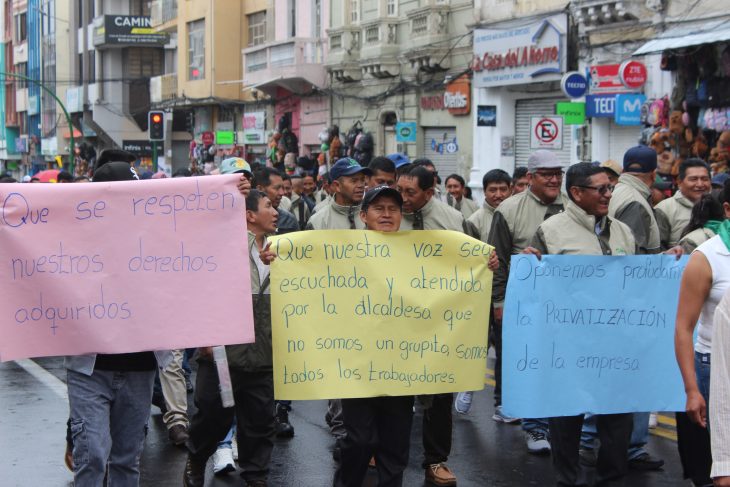 CAMINO
La Casa del Ahorro
TECNO
ZTE
TECNO
infinix
E
Que se respeten
nuestros derechos
adquiridos
Que nuestra voz sea
escuchada y atendida
por la alcaldesa que
no somos un grupito, somos
todos los trabajadores.
Oponemos profundamente
la PRIVATIZACIÓN
de la empresa